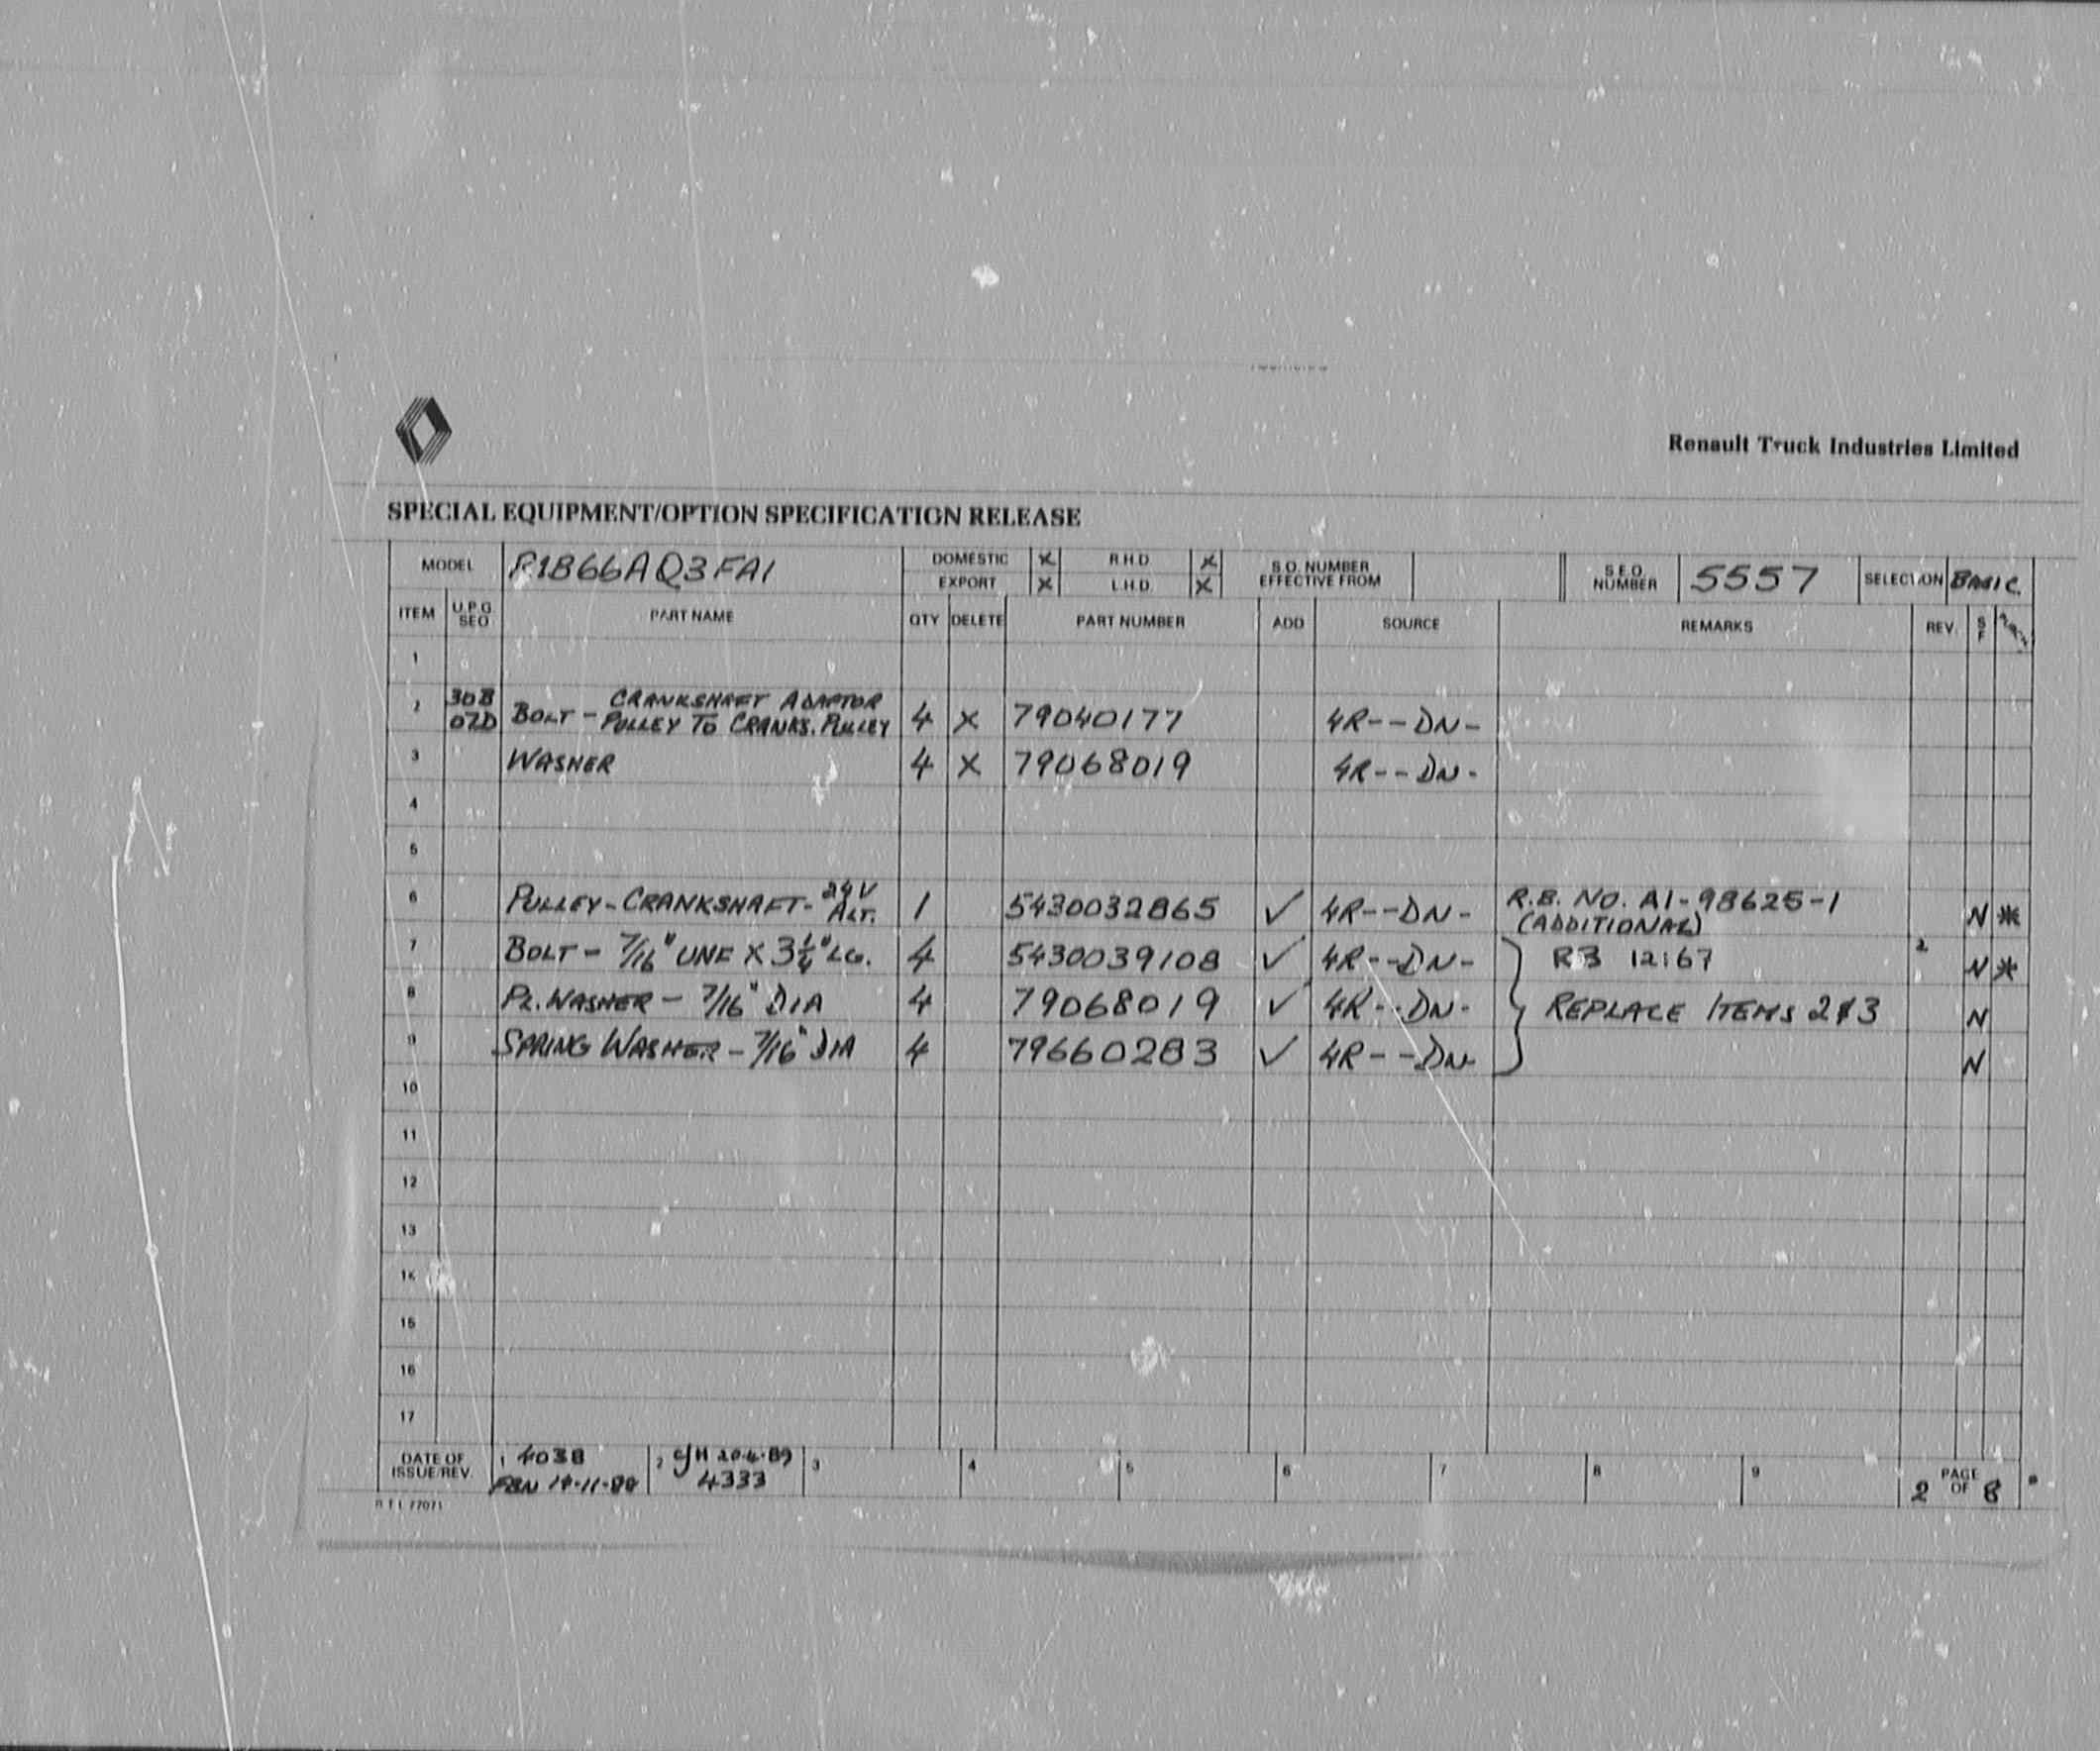 Renault Truck Industries Limited
SPECIAL EQUIPMENT/OPTION SPECIFICATION RELEASE
MODEL P1B66AQ3FA1 DOMESTIC X R H D X S.O. NUMBER EFFECTIVE FROM S.E.O. NUMBER 5557 SELECTION BASIC
EXPORT X L.H.D. X
ITEM U.P.G SEQ PART NAME QTY DELETE PART NUMBER ADD SOURCE REMARKS REV. S F
1
2 308 07D BOLT - CRANKSHAFT ADAPTOR PULLEY TO CRANKS. PULLEY 4 X 79040177 4R--DN-
3 WASHER 4 X 79068019 4R--DN-
4
5
6 PULLEY-CRANKSHAFT- 24V ALT. 1 5430032865 ✓ 4R--DN- R.B. NO. A1-98625-1 (ADDITIONAL) N *
7 BOLT - 7/16" UNF X 3 1/4" LG. 4 5430039108 ✓ 4R--DN- RB 12167 2 N *
8 PL. WASHER - 7/16" DIA 4 79068019 ✓ 4R--DN- REPLACE ITEMS 2&3 N
9 SPRING WASHER - 7/16" DIA 4 79660283 ✓ 4R--DN- N
10
11
12
13
14
15
16
17
DATE OF ISSUE/REV. 1 4038 2 CJH 20.4.89 3 4 5 6 7 8 9 PAGE 2 OF 8
4333
R T I 77071